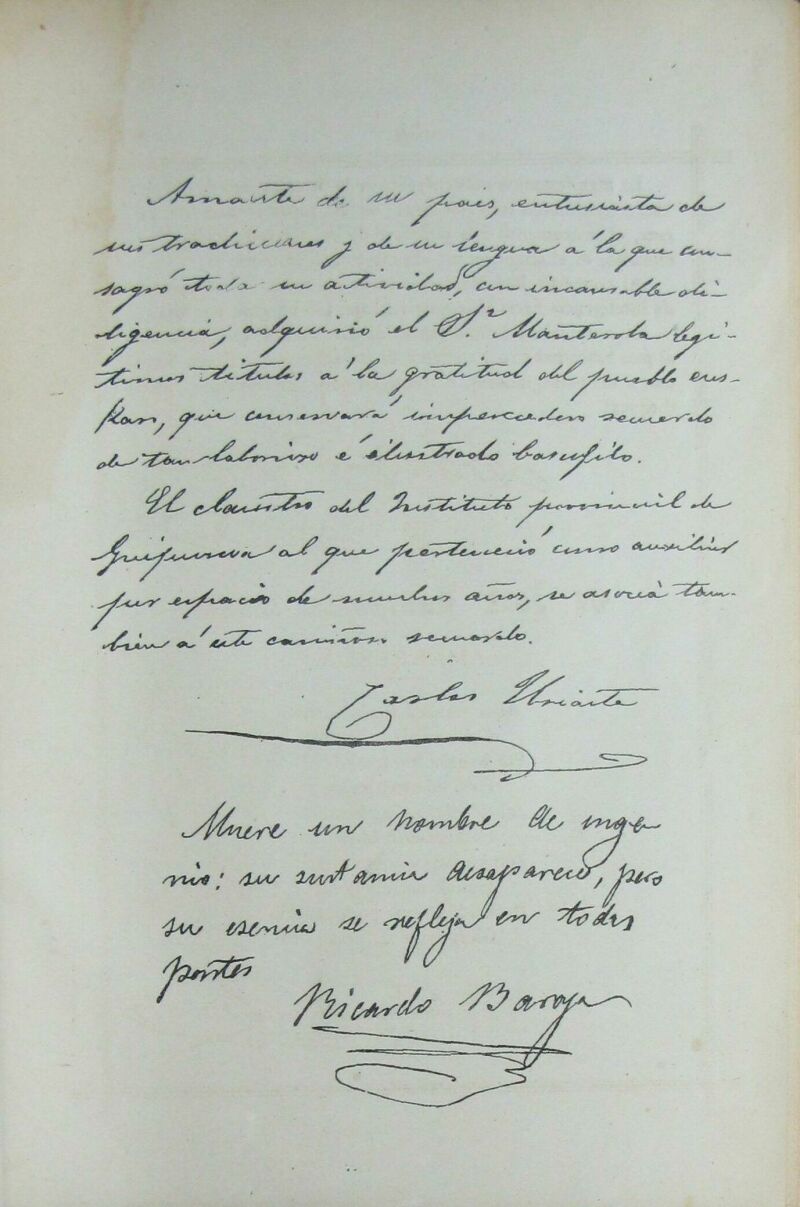 Amante de su pais, entusiasta de
sus tradiciones y de su lengua á la que con-
sagró toda su actividad, con incansable di-
ligencia, adquirió el Sr. Manterola legi-
timos titulos á la gratitud del pueblo eus-
karo, que conservará imperecedero recuerdo
de tan laborioso é ilustrado bascofilo.
El claustro del Instituto provincial de
Guipuzcoa al que perteneció como auxiliar
por espacio de muchos años, se asocia tam-
bien á este cariñoso recuerdo.
Carlos Uriarte
Muere un hombre de inge-
nio: su sustancia desaparece, pero
su esencia se refleja en todas
partes
Ricardo Baroja